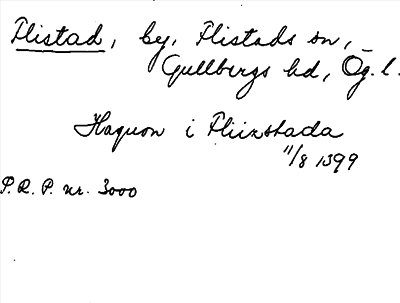 Flistad, by, Flistads sn,
Gullbergs hd, Ög. l.
Haquon i Fliinstada
11/8 1399
P. R. P. nr. 3000